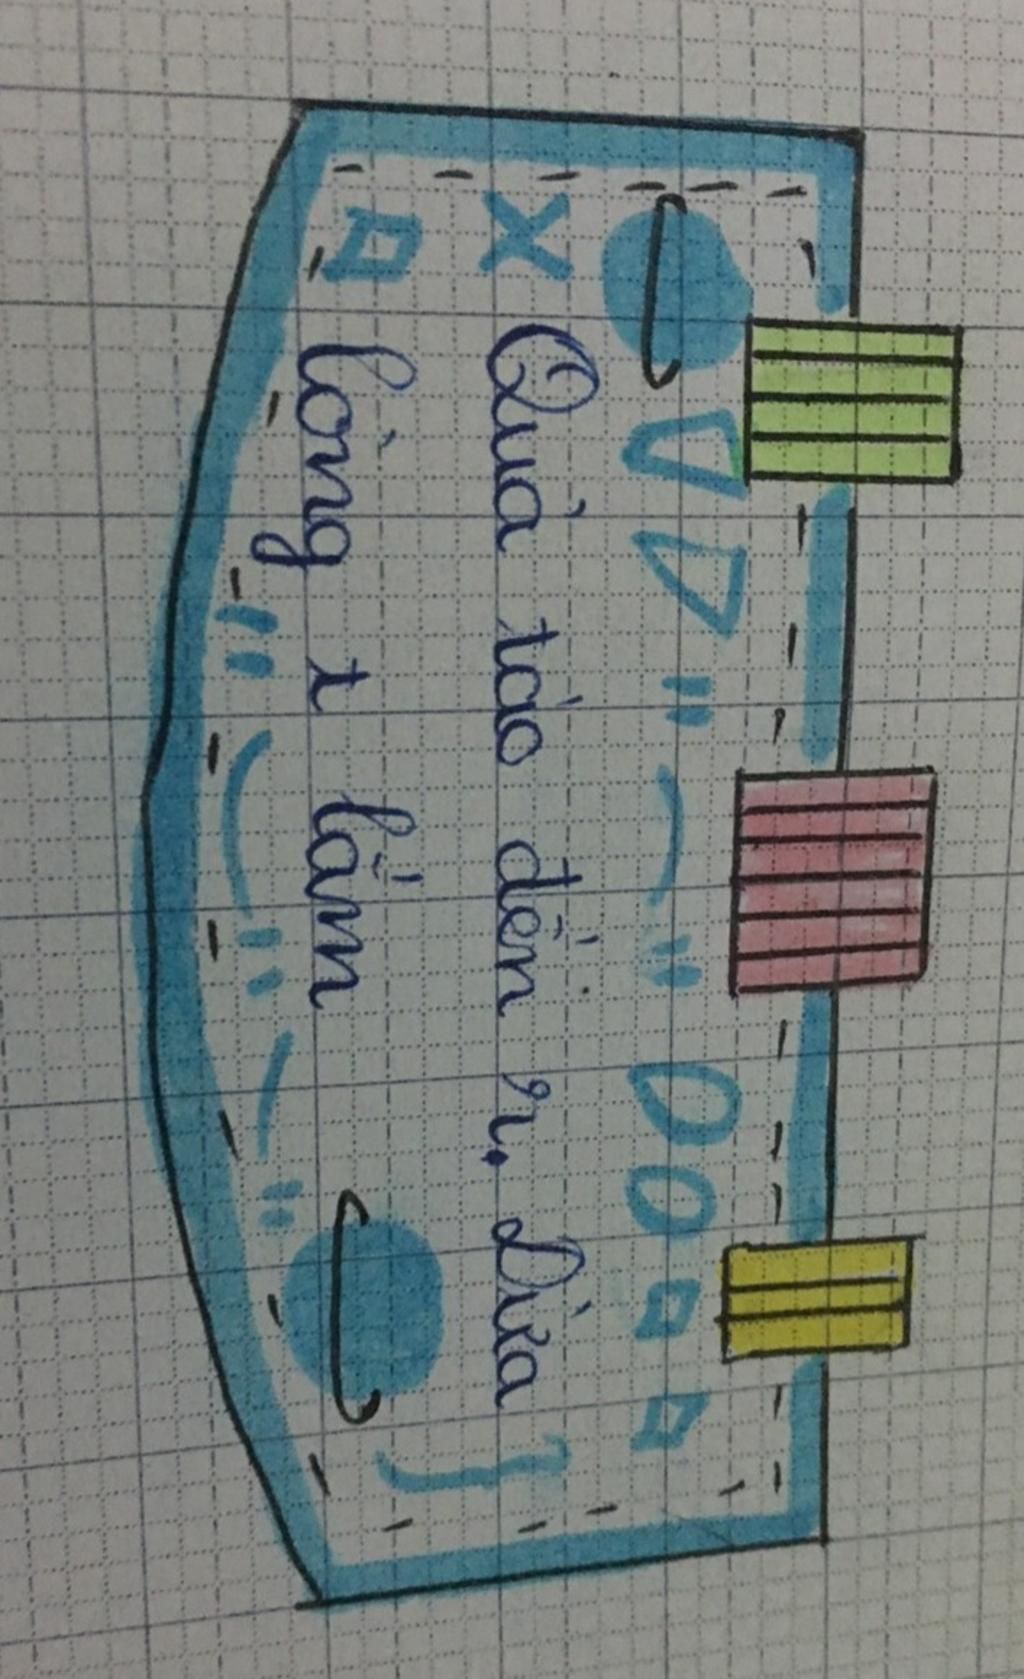 Quà táo đến r, Dừa
lòng t lắm